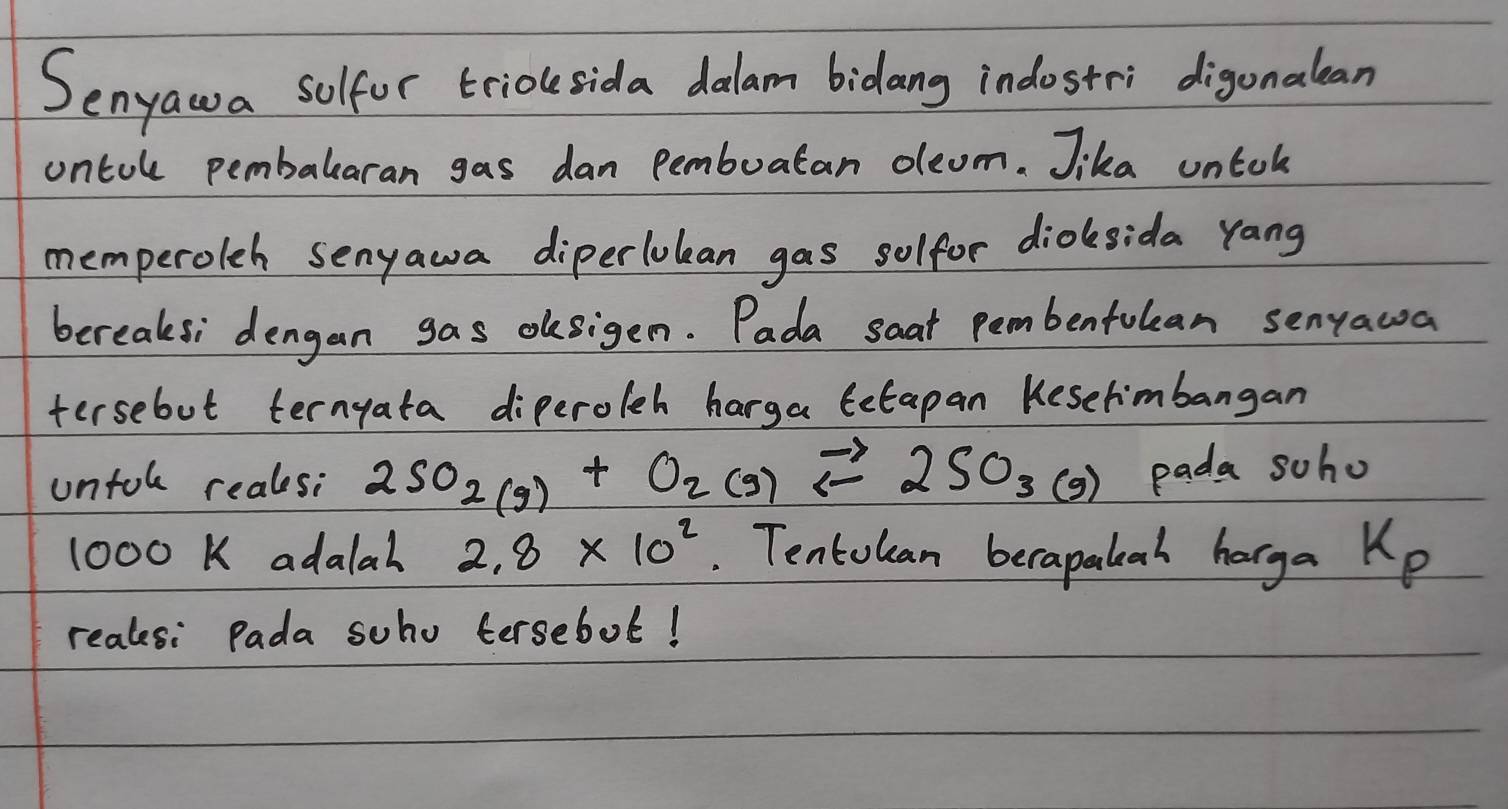 Senyawa sulfur trioksida dalam bidang industri digunakan
untuk pembakaran gas dan pembuatan oleum. Jika untuk
memperoleh senyawa diperlukan gas sulfur dioksida yang
bereaksi dengan gas oksigen. Pada saat pembentukan senyawa
tersebut ternyata diperoleh harga tetapan kesetimbangan
untuk reaksi 2SO₂(g) + O₂(g) ⇄ 2SO₃(g) pada suhu
1000 K adalah 2,8 × 10². Tentukan berapakah harga Kp
reaksi pada suhu tersebut!